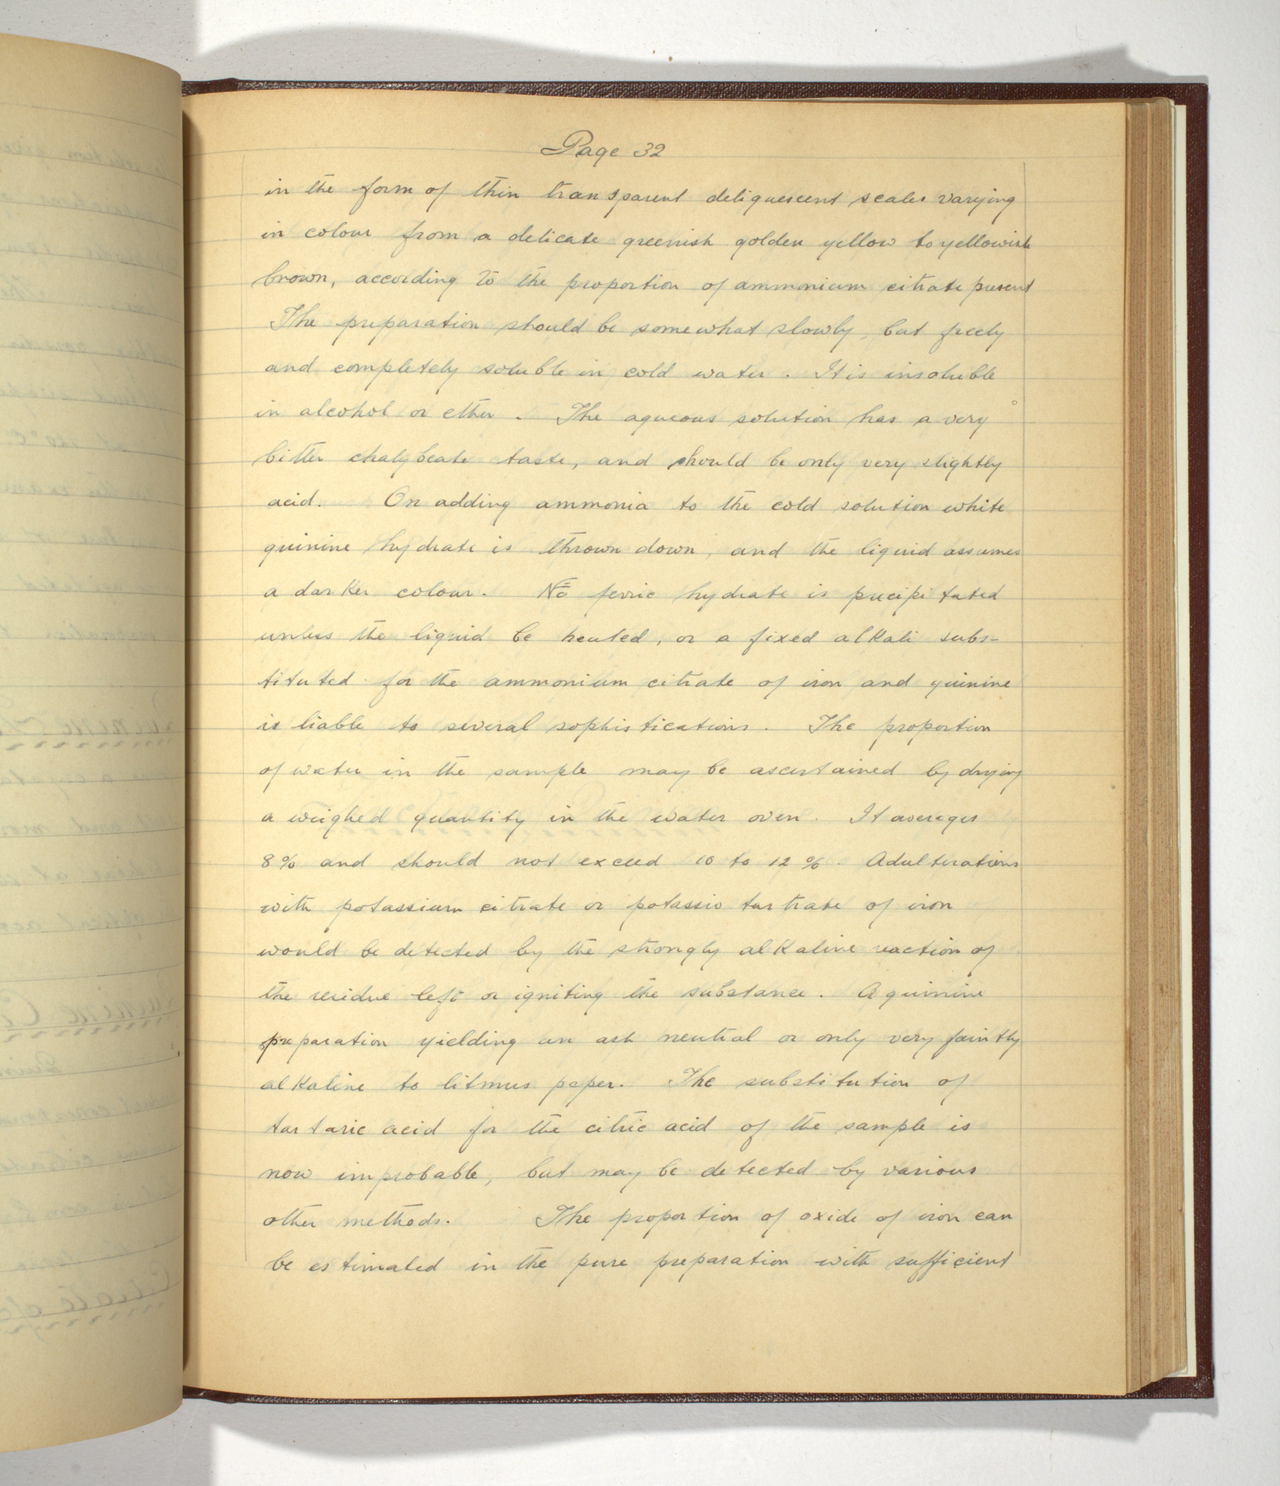 Page 32
in the form of thin transparent deliquescent scales varying
in colour from a delicate greenish golden yellow to yellowish
brown, according to the proportion of ammonium citrate present
The preparation should be somewhat slowly, but freely
and completely soluble in cold water. It is insoluble
in alcohol or ether. The aqueous solution has a very
bitter chalybeate taste, and should be only very slightly
acid. On adding ammonia to the cold solution white
quinine hydrate is thrown down, and the liquid assumes
a darker colour. No ferric hydrate is precipitated
unless the liquid be heated, or a fixed alkali subs-
tituted for the ammonium citrate of iron and quinine
is liable to several sophistications. The proportion
of water in the sample may be ascertained by drying
a weighed quantity in the water oven. It averages
8% and should not exceed 10 to 12%. Adulterations
with potassium citrate or potassio tartrate of iron
would be detected by the strongly alkaline reaction of
the residue left or igniting the substance. A quinine
preparation yielding an ash neutral or only very faintly
alkaline to litmus paper. The substitution of
tartaric acid for the citric acid of the sample is
now improbable, but may be detected by various
other methods. The proportion of oxide of iron can
be estimated in the pure preparation with sufficient